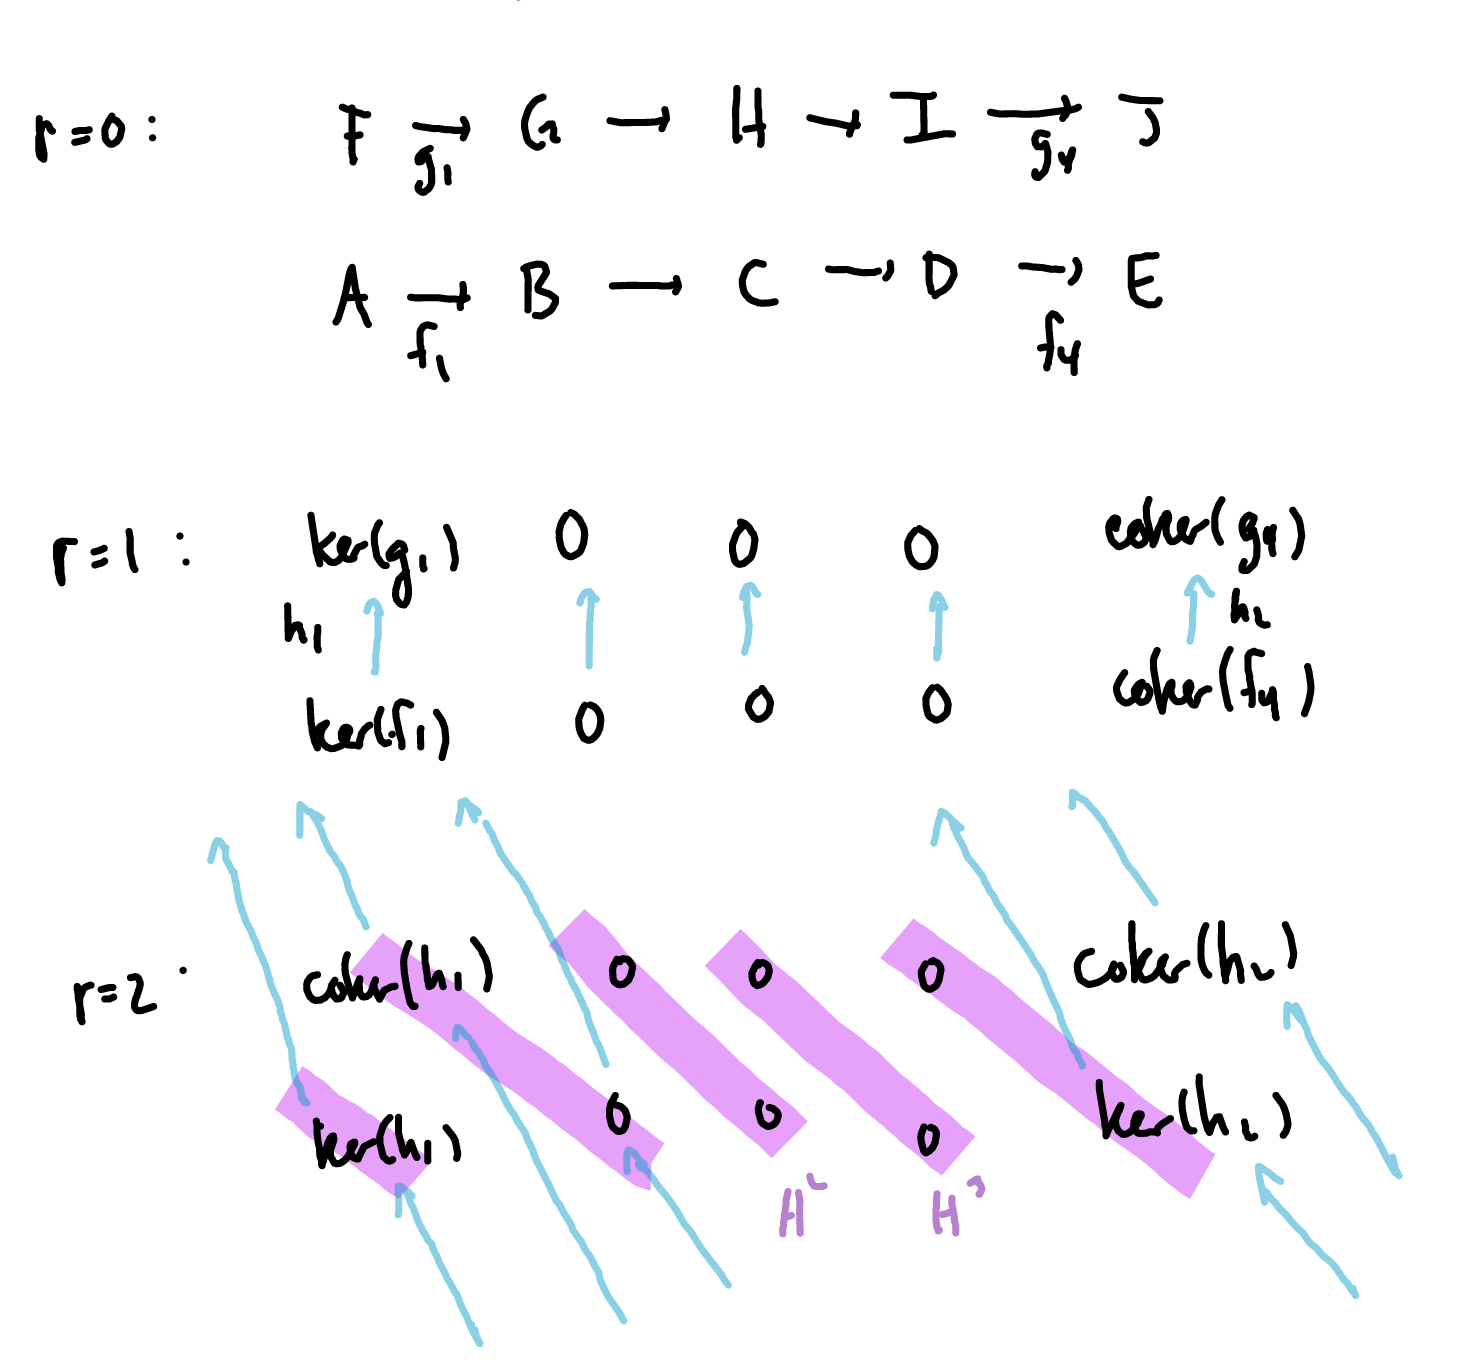 r=0: F → G → H → I → J
g₁ g₄
A → B → C → D → E
f₁ f₄
r=1: ker(g₁) 0 0 0 coker(g₄)
h₁ h₂
ker(f₁) 0 0 0 coker(f₄)
r=2 coker(h₁) 0 0 0 coker(h₂)
ker(h₁) 0 0 0 ker(h₂)
H² H³